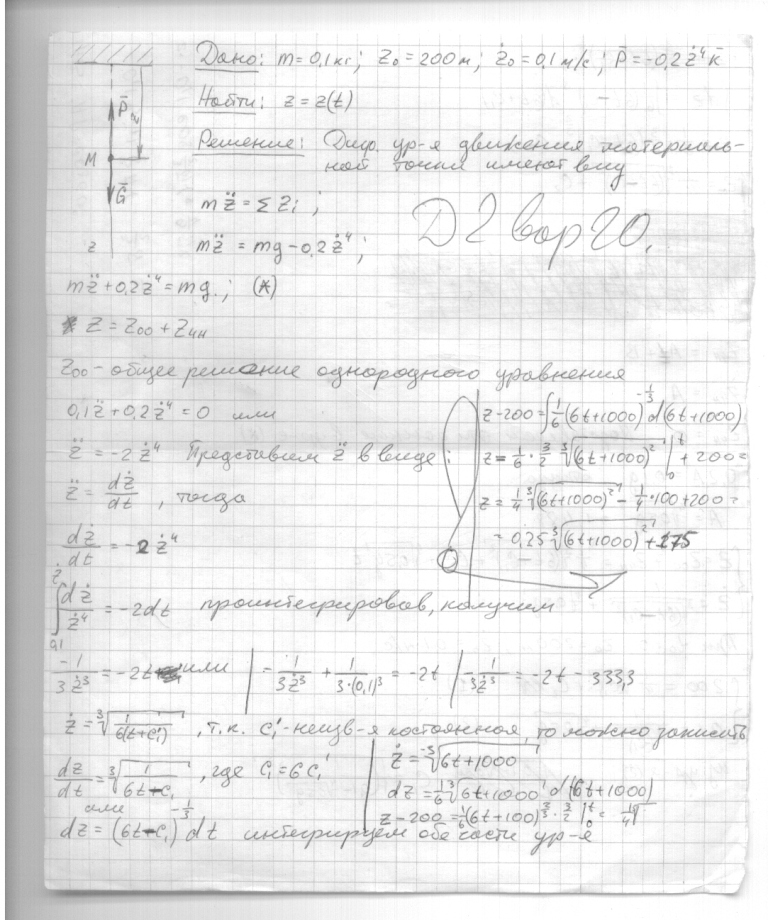 Дано: m = 0,1 кг; z₀ = 200 м; ż₀ = 0,1 м/с; P̄ = -0,2ż⁴k̄
Найти: z = z(t)
Решение: Диф. ур-я движения материаль-
ной точки имеют вид
P̄
z
M
Ḡ
z
mz̈ = Σ Zᵢ;
mz̈ = mg - 0,2ż⁴;
Д2 вар 20.
mz̈ + 0,2ż⁴ = mg.; (*)
z = z₀₀ + zчн
z₀₀ - общее решение однородного уравнения
0,1z̈ + 0,2ż⁴ = 0 или
z̈ = -2ż⁴ Представим z̈ в виде:
z̈ = dż/dt, тогда
dż/dt = -2ż⁴
z - 200 = ∫ 1/6 (6t+1000)^(-1/3) d(6t+1000)
z = 1/6 · 3/2 ∛(6t+1000)² |₀ᵗ + 200 =
z = 1/4 ∛(6t+1000)² - 1/4 · 100 + 200 =
= 0,25 ∛(6t+1000)² + 175
∫ dż/ż⁴ = -2dt проинтегрировав, получим
0,1
-1/3ż³ = -2t или | = 1/3ż³ + 1/3·(0,1)³ = -2t | -1/3ż³ = -2t - 333,3
ż = ∛(1/6(t+c₁')), т.к. c₁' - неизв-я постоянная, то можно записать
dz/dt = ∛(1/6t+c₁), где c₁ = 6c₁'
или
dz = (6t+c₁)^(-1/3) dt интегрируем обе части ур-я
ż = ⁻³√6t+1000
dz = 1/6 ⁻³√6t+1000 d(6t+1000)
z - 200 = 1/6 (6t+100)^(2/3) · 3/2 |₀ᵗ =